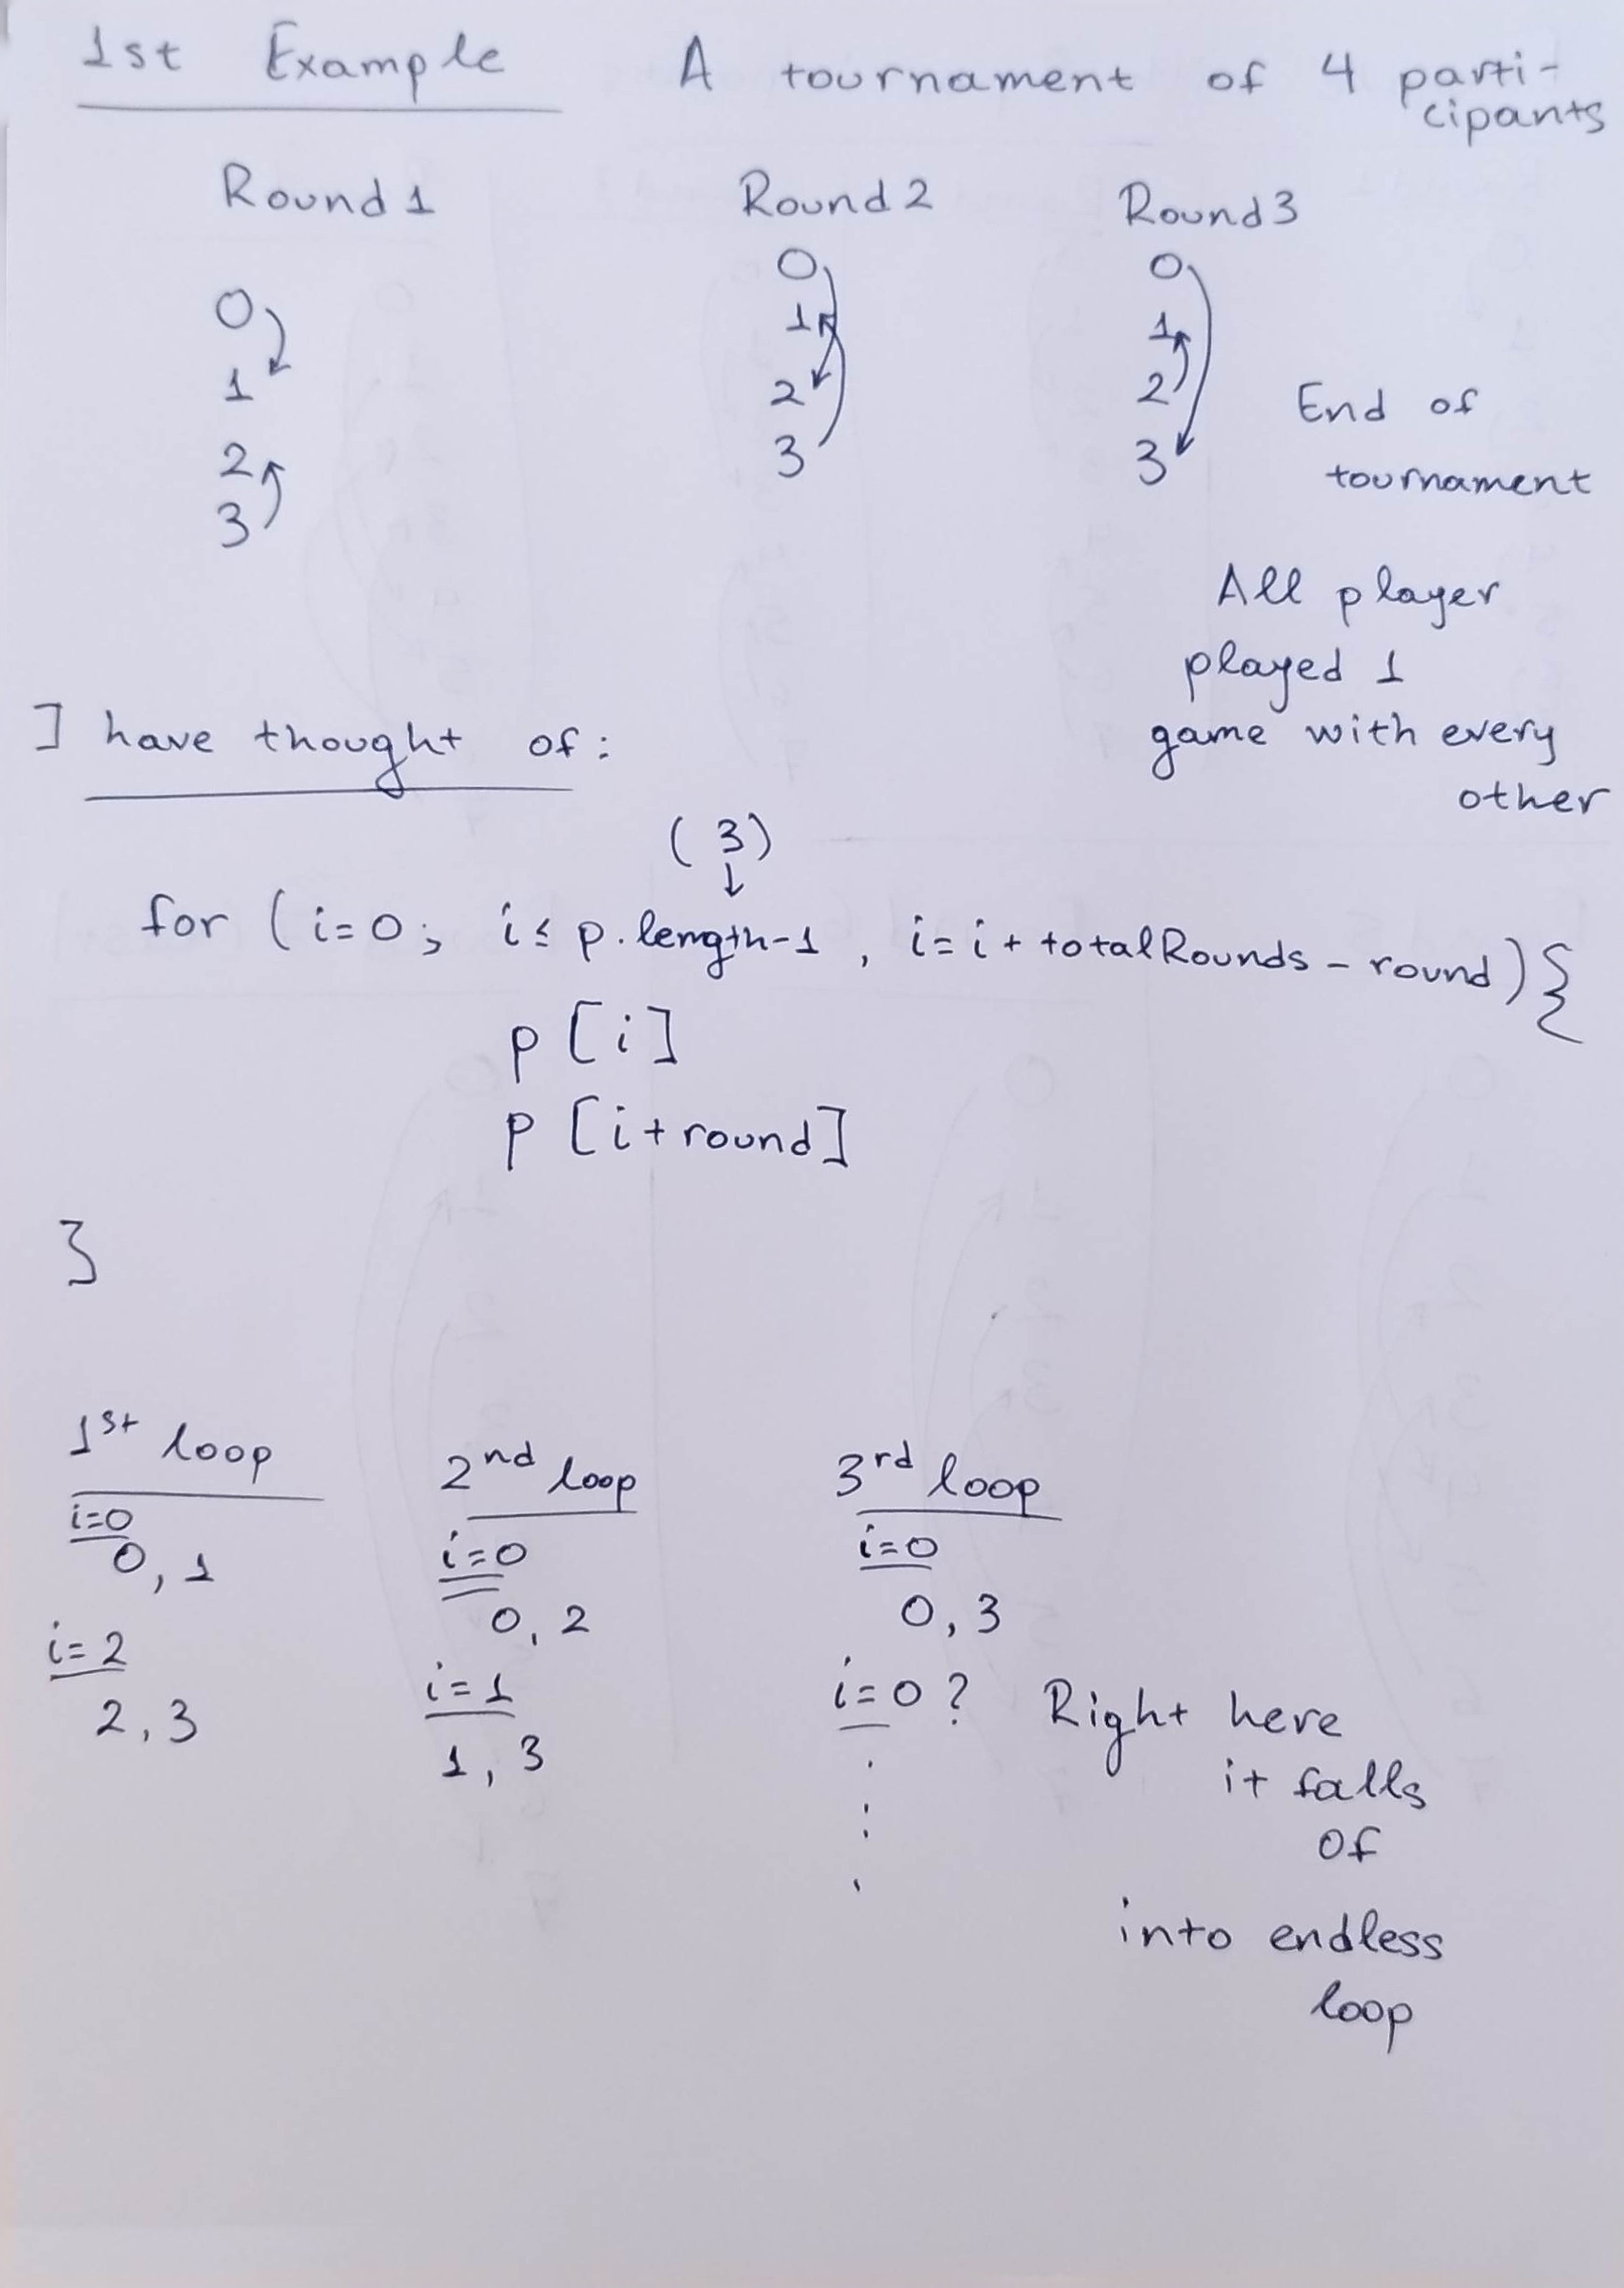 1st Example A tournament of 4 parti-
cipants
Round 1 Round 2 Round 3
0 0 0
1 1 1
2 2 2
3 3 3
End of
tournament
All player
played 1
game with every
other
I have thought of:
(3)
↓
for (i=0; i≤ p.length-1, i=i+totalRounds-round){
p[i]
p[i+round]
}
1st loop 2nd loop 3rd loop
i=0 i=0 i=0
0,1 0,2 0,3
i=2 i=1 i=0? Right here
2,3 1,3 it falls
of
into endless
loop